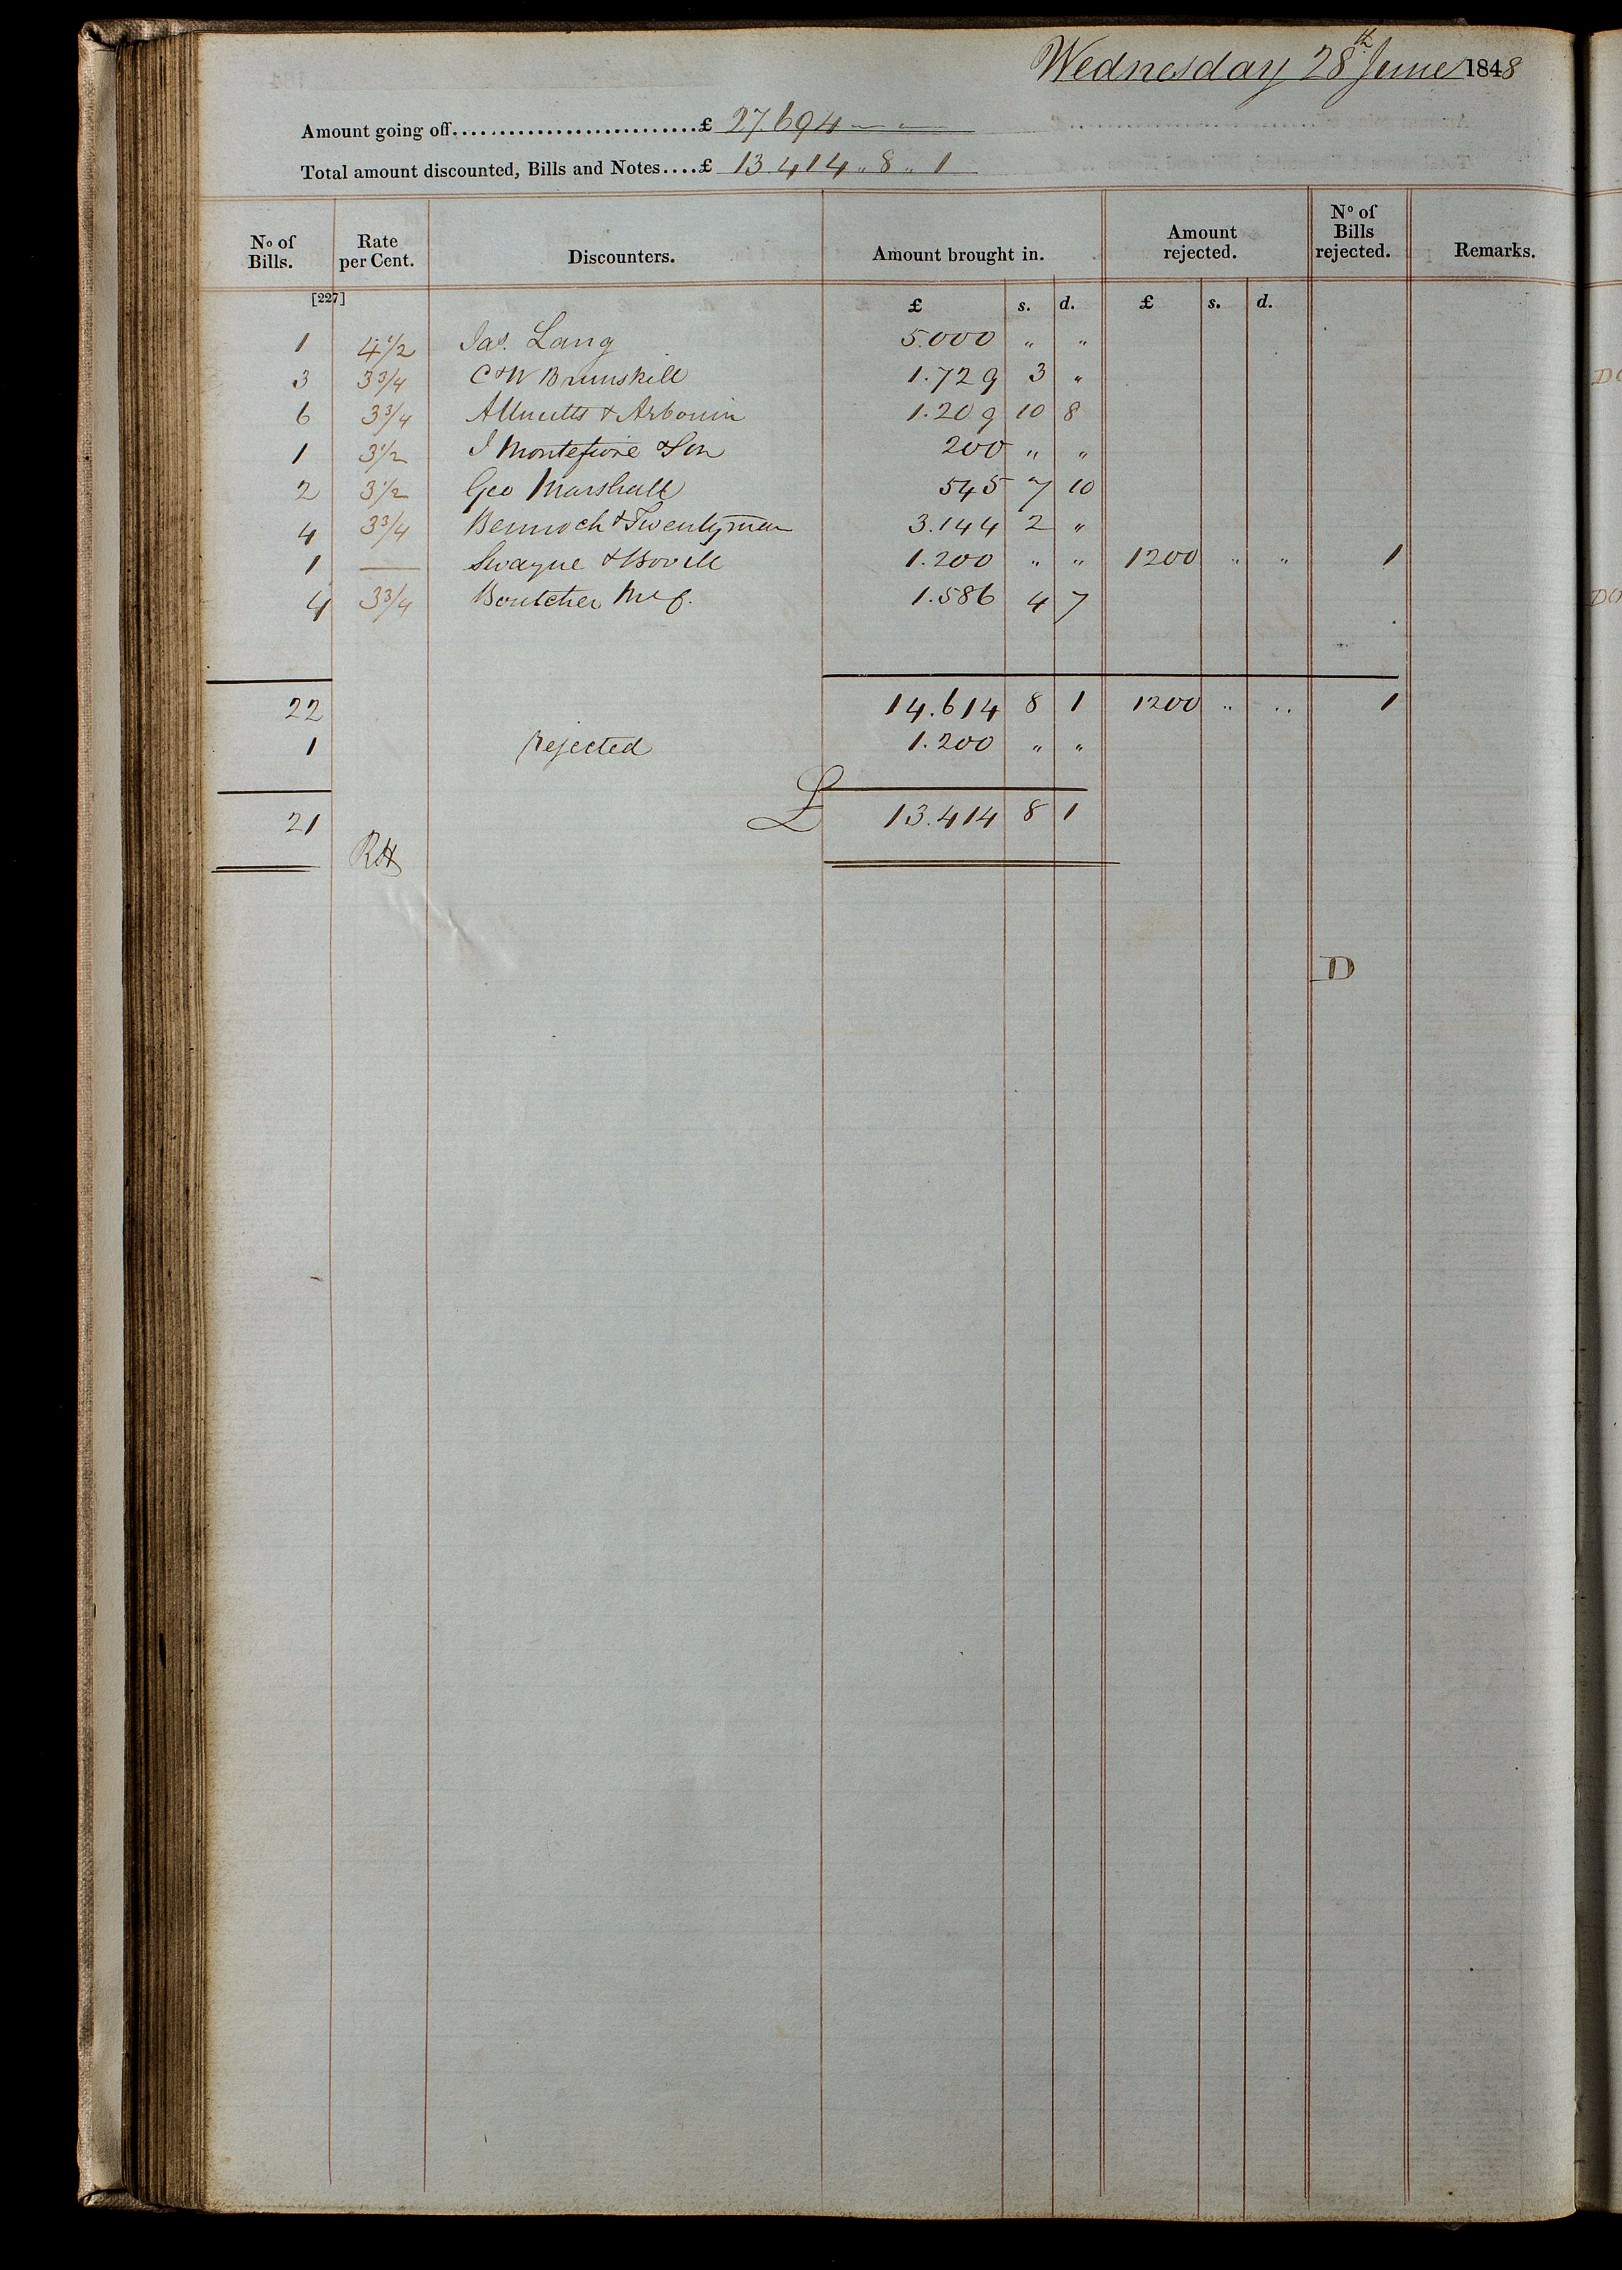 Wednesday 28th June 1848
Amount going off...........................£ 27.694 — —
Total amount discounted, Bills and Notes....£ 13.414 „ 8 „ 1
No of Bills. Rate per Cent. Discounters. Amount brought in. Amount rejected. No of Bills rejected. Remarks.
[227] £ s. d. £ s. d.
1 4½ Jas. Lang 5.000 „ „
3 3¾ C & W Brunskill 1.729 3 „
6 3¾ Allnutts & Arbouin 1.209 10 8
1 3½ J Montefiore & Son 200 „ „
2 3½ Geo Marshall 545 7 10
4 3¾ Bennoch & Twentyman 3.144 2 „
1 — Swayne & Bovill 1.200 „ „ 1200 „ „ 1
4 3¾ Boutcher M & C. 1.586 4 7
22 14.614 8 1 1200 „ „ 1
1 Rejected 1.200 „ „
21 £ 13.414 8 1
RH
D